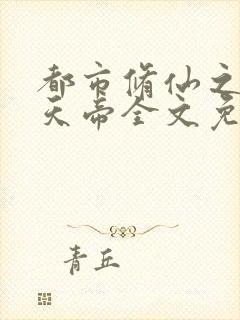 都市修仙之
天帝全文免
青丘